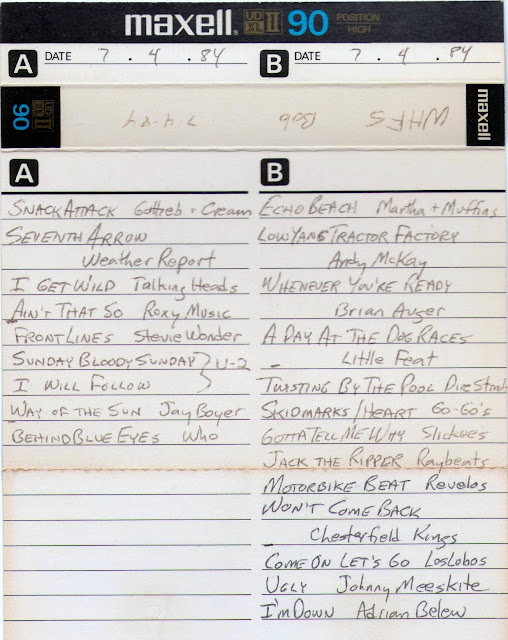 maxell. UD XL II 90 POSITION HIGH
A DATE 7 . 4 . 84
B DATE 7 . 4 . 84
WHFS Bob 7-4-84
maxell
UD XL II 90
A
SNACK ATTACK Gottlieb + Cream
SEVENTH ARROW
Weather Report
I GET WILD Talking Heads
AIN'T THAT SO Roxy Music
FRONTLINES Stevie Wonder
SUNDAY BLOODY SUNDAY } U-2
I WILL FOLLOW
WAY OF THE SUN Jay Boyer
BEHIND BLUE EYES Who
B
ECHO BEACH Martha + Muffins
LOW YANG TRACTOR FACTORY
Andy McKay
WHENEVER YOU'RE READY
Brian Auger
A DAY AT THE DOG RACES
Little Feat
TWISTING BY THE POOL Dire Strait
SKIDMARKS/HEART Go-Go's
GOTTA TELL ME WHY Slickees
JACK THE RIPPER Raybeats
MOTORBIKE BEAT Revelos
WON'T COME BACK
Chesterfield Kings
COME ON LET'S GO Los Lobos
UGLY Johnny Meeskite
I'M DOWN Adrian Belew